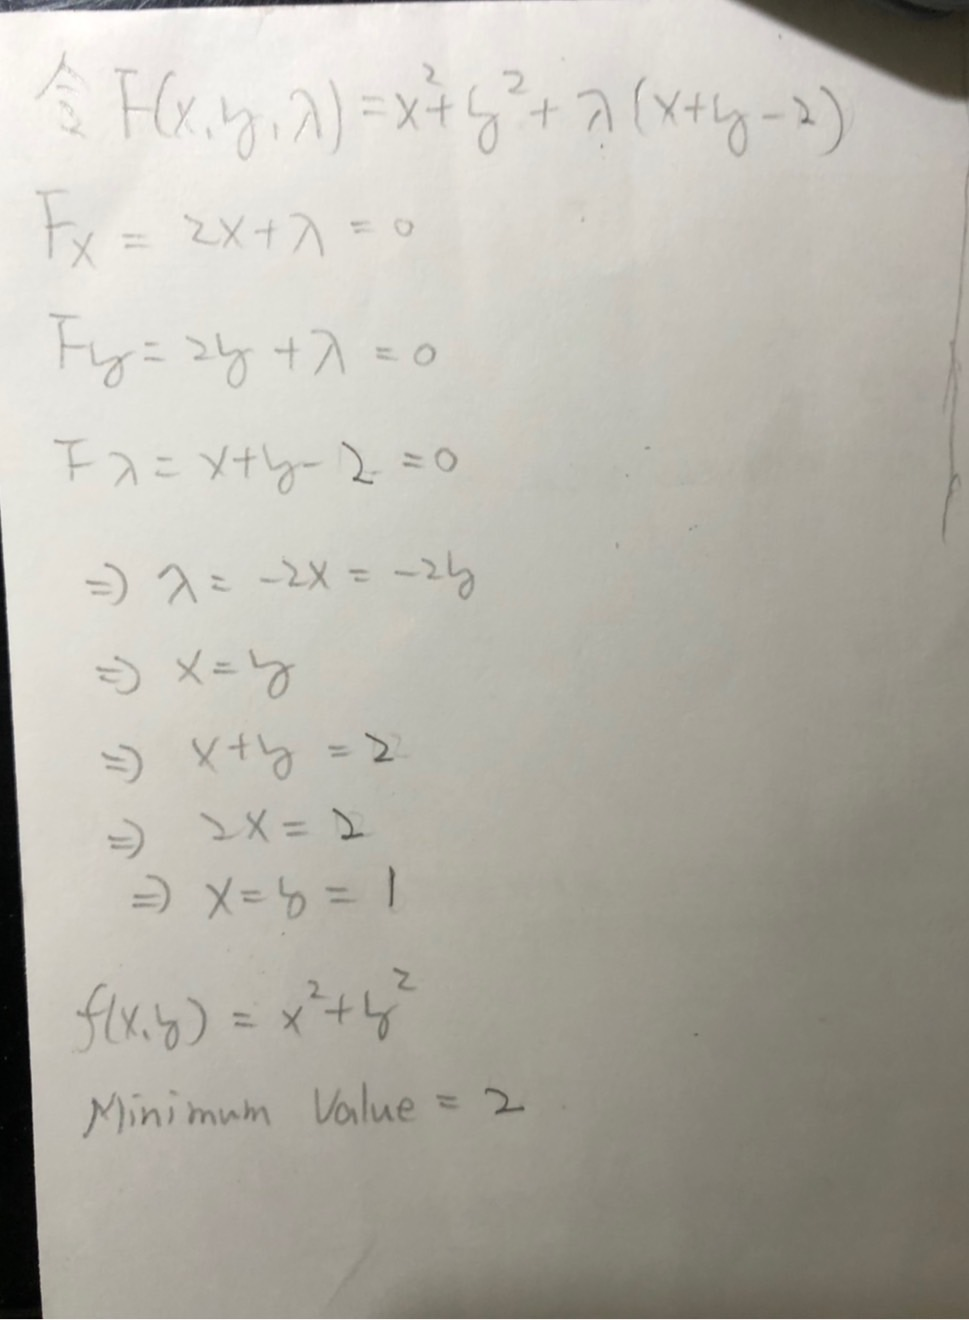 令 F(x,y,λ)=x²+y²+λ(x+y-2)
Fx = 2x+λ=0
Fy=2y+λ=0
Fλ=x+y-2=0
⇒ λ=-2x=-2y
⇒ x=y
⇒ x+y=2
⇒ 2x=2
⇒ x=y=1
f(x,y)=x²+y²
Minimum Value=2